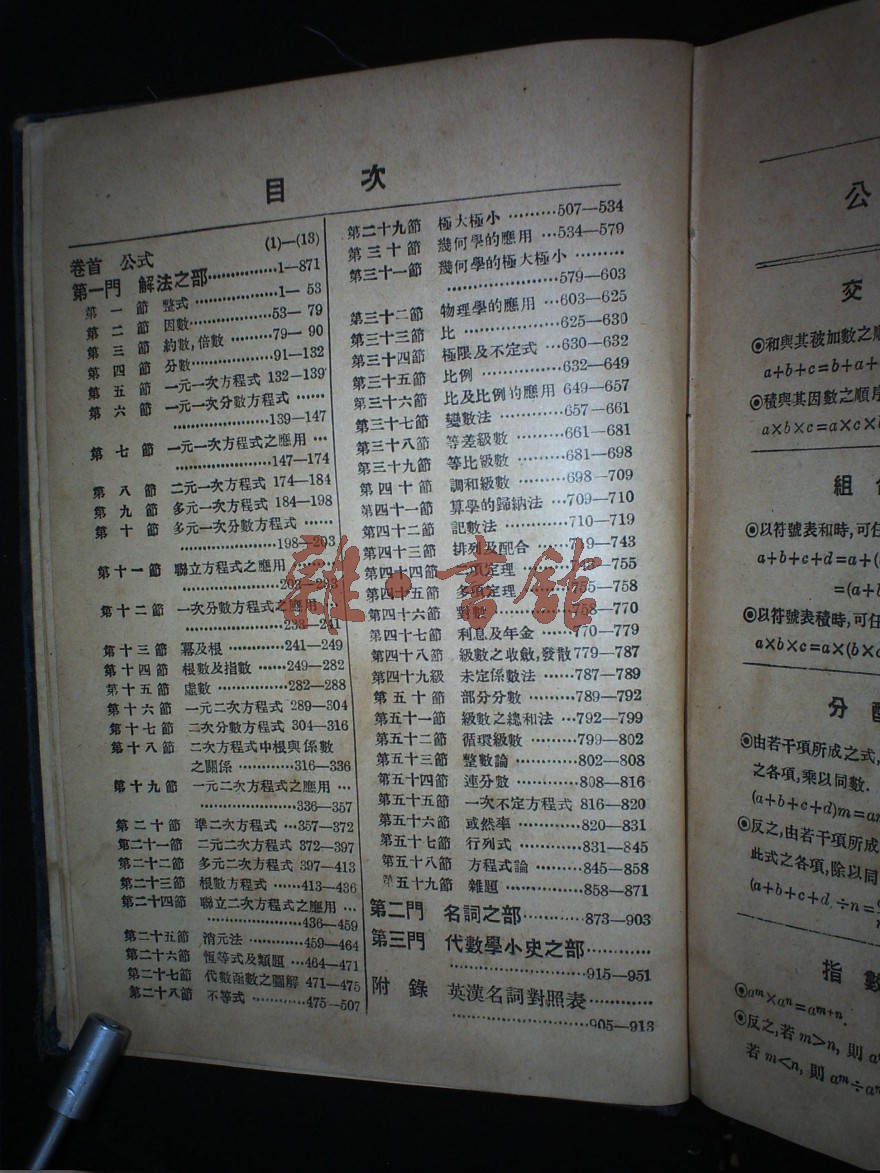 目 次
卷首 公式 (1)—(13)
第一門 解法之部……………1—871
第一節 整式……………1— 53
第二節 因數…………53— 79
第三節 約數,倍數………79— 90
第四節 分數…………91—132
第五節 一元一次方程式 132—139
第六節 一元一次分數方程式……
……………139—147
第七節 一元一次方程式之應用…
……………147—174
第八節 二元一次方程式 174—184
第九節 多元一次方程式 184—198
第十節 多元一次分數方程式……
……………198—203
第十一節 聯立方程式之應用………
……………203—233
第十二節 一次分數方程式之應用…
……………233—241
第十三節 冪及根………241—249
第十四節 根數及指數……249—282
第十五節 虛數…………282—288
第十六節 一元二次方程式 289—304
第十七節 二次分數方程式 304—316
第十八節 二次方程式中根與係數
之關係…………316—336
第十九節 一元二次方程式之應用…
……………336—357
第二十節 準二次方程式…357—372
第二十一節 二元二次方程式 372—397
第二十二節 多元二次方程式 397—413
第二十三節 根數方程式……413—436
第二十四節 聯立二次方程式之應用…
……………436—459
第二十五節 消元法…………459—464
第二十六節 恆等式及類題…464—471
第二十七節 代數函數之圖解 471—475
第二十八節 不等式…………475—507
第二十九節 極大極小………507—534
第三十節 幾何學的應用…534—579
第三十一節 幾何學的極大極小………
……………579—603
第三十二節 物理學的應用…603—625
第三十三節 比……………625—630
第三十四節 極限及不定式…630—632
第三十五節 比例…………632—649
第三十六節 比及比例的應用 649—657
第三十七節 變數法…………657—661
第三十八節 等差級數………661—681
第三十九節 等比級數………681—698
第四十節 調和級數………698—709
第四十一節 算學的歸納法…709—710
第四十二節 記數法…………710—719
第四十三節 排列及配合……719—743
第四十四節 二項定理………743—755
第四十五節 多項定理………755—758
第四十六節 對數…………758—770
第四十七節 利息及年金……770—779
第四十八節 級數之收斂,發散 779—787
第四十九級 未定係數法……787—789
第五十節 部分分數………789—792
第五十一節 級數之總和法…792—799
第五十二節 循環級數………799—802
第五十三節 整數論…………802—808
第五十四節 連分數…………808—816
第五十五節 一次不定方程式 816—820
第五十六節 或然率…………820—831
第五十七節 行列式…………831—845
第五十八節 方程式論………845—858
第五十九節 雜題…………858—871
第二門 名詞之部…………873—903
第三門 代數學小史之部…………
……………915—951
附錄 英漢名詞對照表…………
……………905—913
公
交
◉和與其被加數之順
a+b+c=b+a+
◉積與其因數之順序
a×b×c=a×c×
組
◉以符號表和時,可任
a+b+c+d=a+(
=(a+b
◉以符號表積時,可任
a×b×c=a×(b×
分 配
◉由若干項所成之式,
之各項,乘以同數.
(a+b+c+d)m=am
◉反之,由若干項所成
此式之各項,除以同
(a+b+c+d÷n=
指 數
◉aᵐ×aⁿ=aᵐ⁺ⁿ.
◉反之,若 m>n, 則 aᵐ
若 m<n, 則 aᵐ÷aⁿ